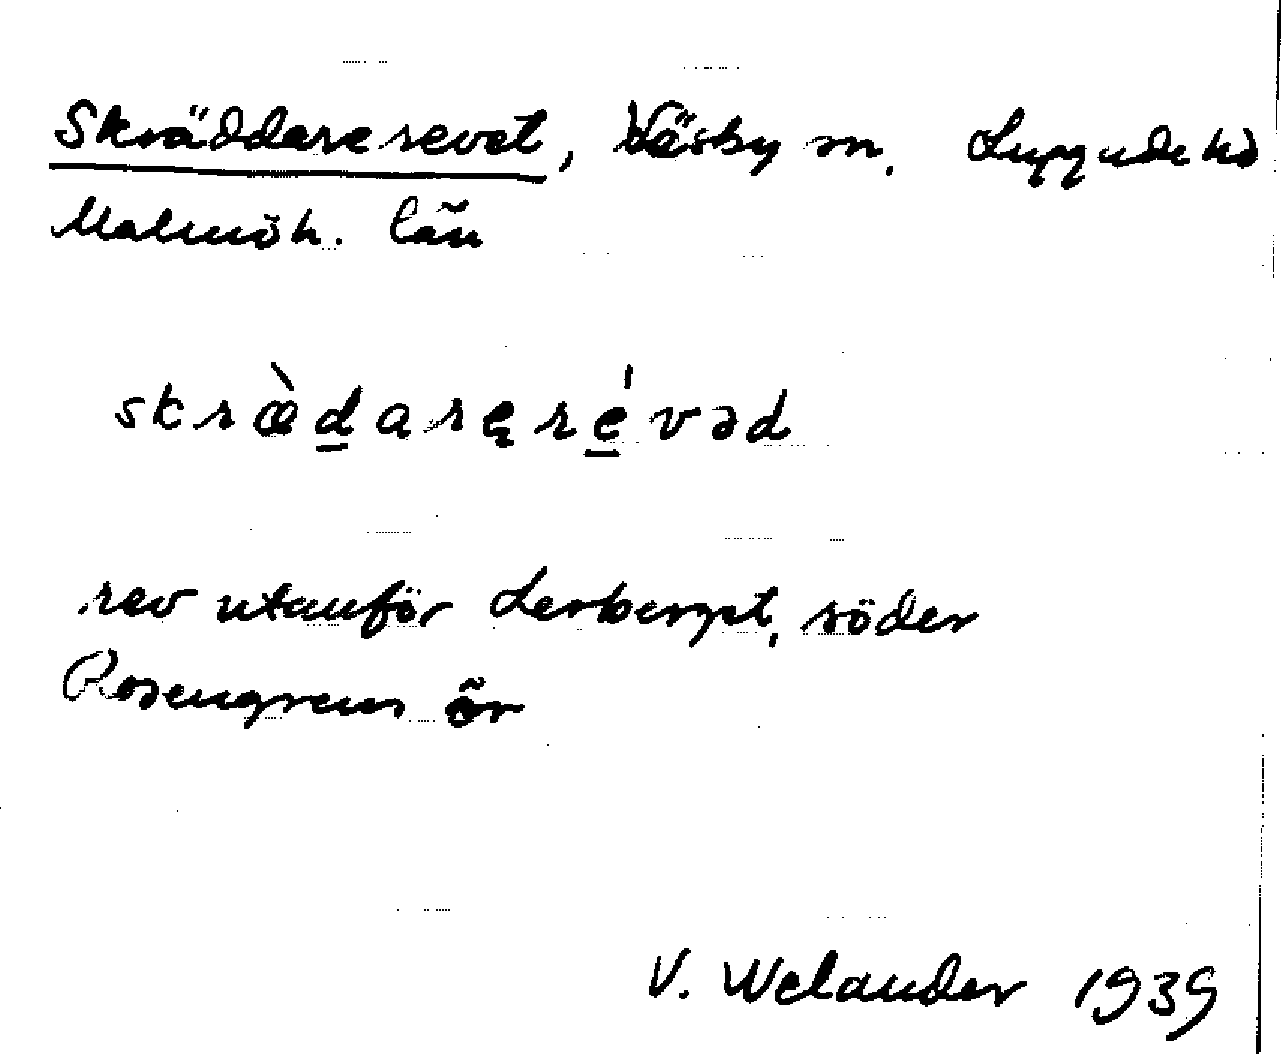 Skräddarerevet, Väsby sn. Luggude hd
Malmöh. län
skræ̀d̲aręre̲̍vəd
rev utanför Lerberget, söder
Rosengrens ör
V. Welander 1939